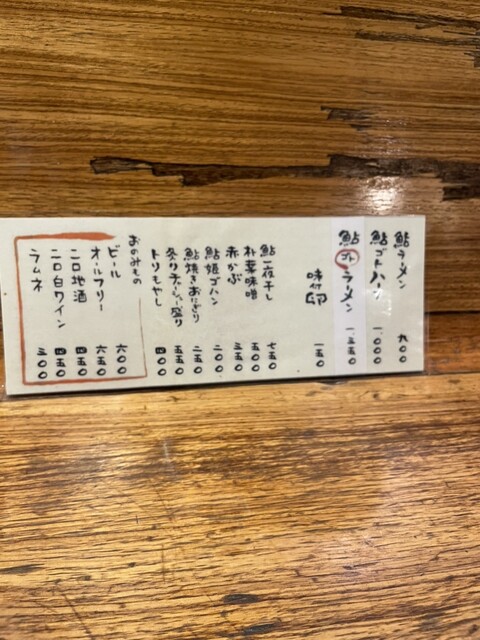 鮎ラーメン 九〇〇
鮎ゴハン 一、〇〇〇
鮎ラーメン 一、三五〇
味付卵 一五〇
鮎一夜干し 七五〇
朴葉味噌 五五〇
赤かぶ 三五〇
鮎姫ゴハン 二〇〇
鮎焼きおにぎり 二五〇
炙りチャーシュー盛り 五五〇
トリもやし 四〇〇
おのみもの
ビール 六〇〇
オールフリー 六五〇
二口地酒 四五〇
二口白ワイン 四五〇
ラムネ 三〇〇